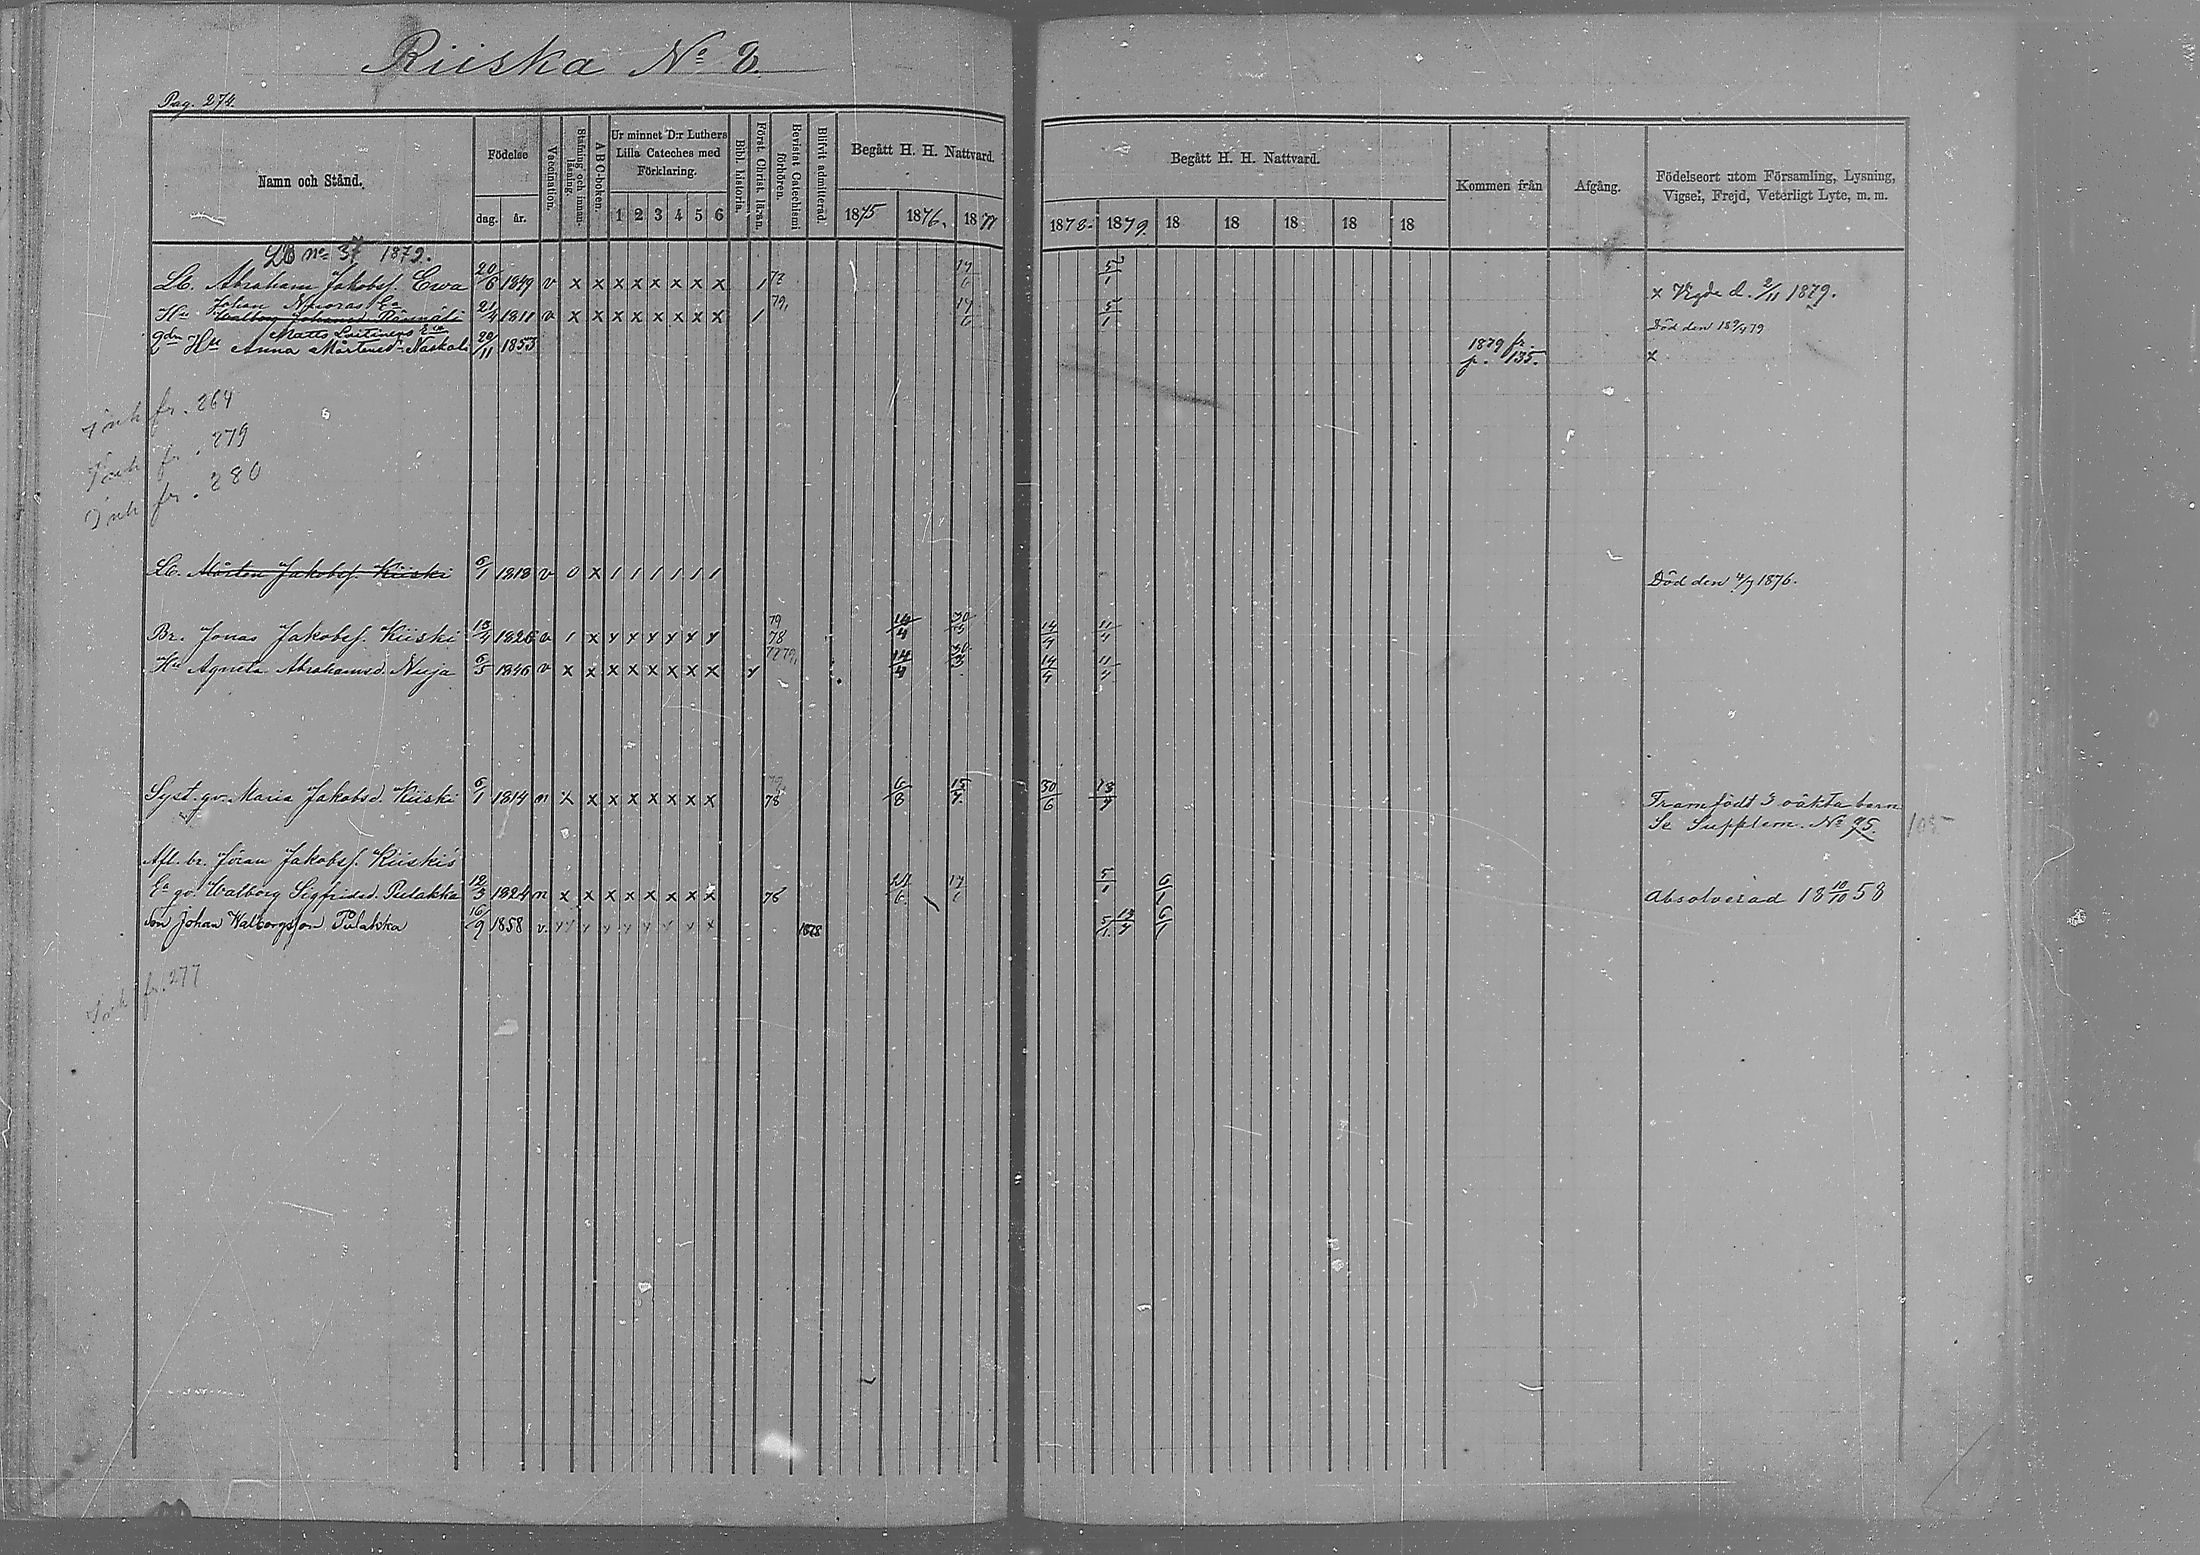 Riiska No 2.
Pag. 274.
Namn och Stånd.
Födelse
dag. år.
Vaccination.
Stafning och innanläsning.
A B C-boken.
Ur minnet D:r Luthers Lilla Cateches med Förklaring.
1 2 3 4 5 6
Bibl. historia.
Först. Christ. läran.
Bevistat Catechismi förhören.
Blifvit admitterad.
Begått H. H. Nattvard.
1875 1876. 1877
Begått H. H. Nattvard.
1878. 1879. 18 18 18 18 18
Kommen från
Afgång.
Födelseort utom Församling, Lysning, Vigsel, Frejd, Veterligt Lyte, m. m.
No 37 1879.
Abraham Jakobss. Ewa 20/6 1849 v x x x x x x x x 1 17/6 5/1 x Vigde d. 2/11 1879.
Johan
Hu Walborg 21/4 1811 v x x x x x x x x 1 79, 17/6 5/1 Död den 18 /4 79
Matts Laitinens Ea
Hu Anna Mårtensd. Naskali 20/11 1853 1879 fr. p. 135. x
Inh fr. 264
Inh fr. 279
Inh fr. 280
Mårten Jakobss. Kiiski 6/1 1818 v 0 x 1 1 1 1 1 1 Död den 4/7 1876.
Br. Jonas Jakobss. Kiiski 18/4 1826 v 1 x y y y y y y 79 78 14/4 30/3 14/4 11/4
Hu Agneta Abrahamsd. Nuija 6/5 1846 v x x x x x x x x y 14/4 30/3 14/4 11/4
Syst. gv. Maria Jakobsd. Kiiski 6/1 1814 n x x x x x x x x 78 6/8 15/7. 30/6 13/4 Framfödt 3 oäkta barn
Se Supplem. No 95. 105
Afl. br. Jöran Jakobss. Kiiski's
Ea gv. Walborg Sigfridsd. Pulakka 12/3 1824 n x x x x x x x x 76 17/6 5/1 6/1 Absolverad 18 18/10 58
Son Johan Walborgsson Pulakka 16/9 1858 v. y y y y y y y y x 1878 5/1 13/4 6/1
Inh fr. 277